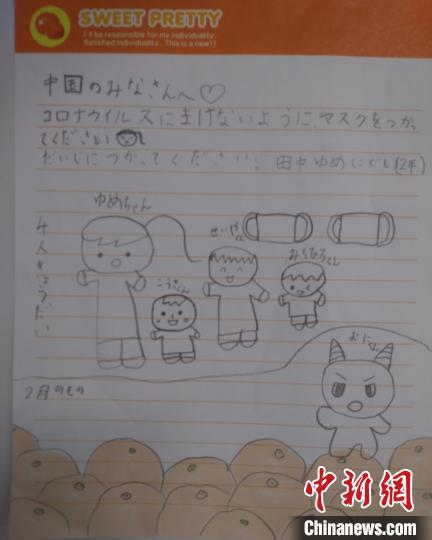 SWEET PRETTY
I'll be responsible for my individuality.
Satisfied individuality. This is a new!!
中国のみなさんへ♡
コロナウイルスにまけないように、マスクをつかっ
てください
だいじにつかってください! 田中ゆめ
ゆめちゃん
こうきくん
みちひろくん
4人きょうだい
おに
2月のもの
中新网
Chinanews.com